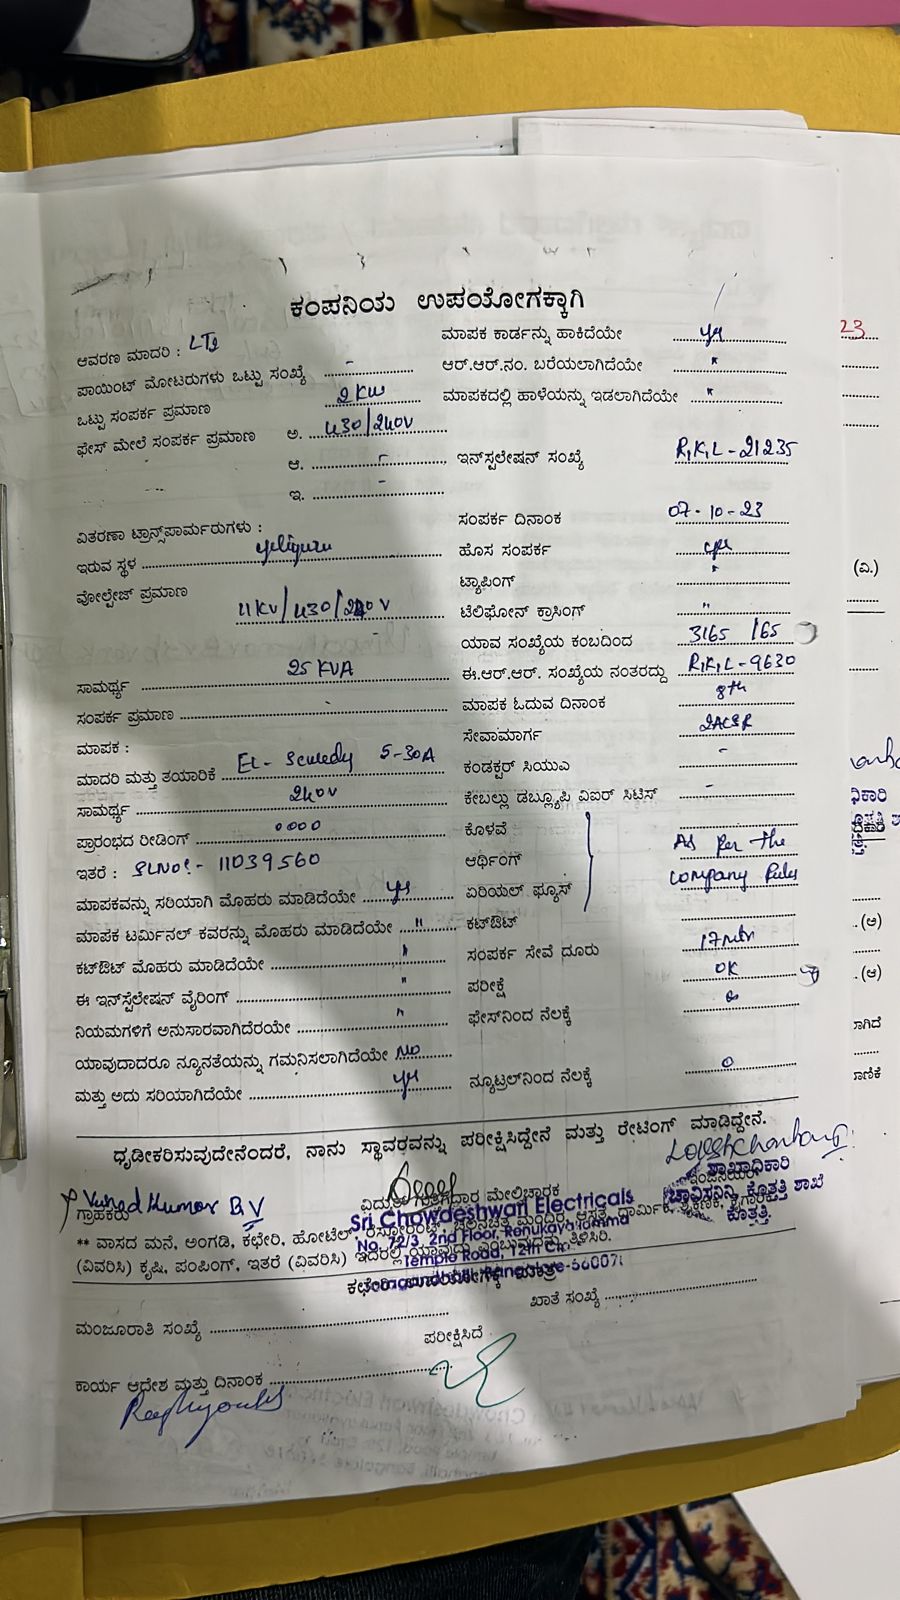 ಕಂಪನಿಯ ಉಪಯೋಗಕ್ಕಾಗಿ
ಆವರಣ ಮಾದರಿ :
ಪಾಯಿಂಟ್ ಮೋಟರುಗಳು ಒಟ್ಟು ಸಂಖ್ಯೆ -
ಒಟ್ಟು ಸಂಪರ್ಕ ಪ್ರಮಾಣ 2 KW
ಫೇಸ್ ಮೇಲೆ ಸಂಪರ್ಕ ಪ್ರಮಾಣ ಅ. 430/240V
ಆ. -
ಇ. -
ವಿತರಣಾ ಟ್ರಾನ್ಸ್‌ಪಾರ್ಮರುಗಳು :
ಇರುವ ಸ್ಥಳ
ವೋಲ್ಟೇಜ್ ಪ್ರಮಾಣ
11KV/430/240V
ಸಾಮರ್ಥ್ಯ 25 KVA
ಸಂಪರ್ಕ ಪ್ರಮಾಣ
ಮಾಪಕ :
ಮಾದರಿ ಮತ್ತು ತಯಾರಿಕೆ 5-30A
ಸಾಮರ್ಥ್ಯ 240V
ಪ್ರಾರಂಭದ ರೀಡಿಂಗ್ 0000
ಇತರೆ : SLNo:- 11039560
ಮಾಪಕವನ್ನು ಸರಿಯಾಗಿ ಮೊಹರು ಮಾಡಿದೆಯೇ yes
ಮಾಪಕ ಟರ್ಮಿನಲ್ ಕವರನ್ನು ಮೊಹರು ಮಾಡಿದೆಯೇ "
ಕಟ್‌ಔಟ್ ಮೊಹರು ಮಾಡಿದೆಯೇ "
ಈ ಇನ್‌ಸ್ಟೆಲೇಷನ್ ವೈರಿಂಗ್ "
ನಿಯಮಗಳಿಗೆ ಅನುಸಾರವಾಗಿದೆರಯೇ "
ಯಾವುದಾದರೂ ನ್ಯೂನತೆಯನ್ನು ಗಮನಿಸಲಾಗಿದೆಯೇ NO
ಮತ್ತು ಅದು ಸರಿಯಾಗಿದೆಯೇ yes
ಮಾಪಕ ಕಾರ್ಡನ್ನು ಹಾಕಿದೆಯೇ yes
ಆರ್.ಆರ್.ನಂ. ಬರೆಯಲಾಗಿದೆಯೇ "
ಮಾಪಕದಲ್ಲಿ ಹಾಳೆಯನ್ನು ಇಡಲಾಗಿದೆಯೇ "
ಇನ್‌ಸ್ಟಲೇಷನ್ ಸಂಖ್ಯೆ R,K,L-21235
ಸಂಪರ್ಕ ದಿನಾಂಕ 07-10-23
ಹೊಸ ಸಂಪರ್ಕ yes
ಟ್ಯಾಪಿಂಗ್ "
ಟೆಲಿಫೋನ್ ಕ್ರಾಸಿಂಗ್ "
ಯಾವ ಸಂಖ್ಯೆಯ ಕಂಬದಿಂದ 3165 /65
ಈ.ಆರ್.ಆರ್. ಸಂಖ್ಯೆಯ ನಂತರದ್ದು R,K,L-9630
ಮಾಪಕ ಓದುವ ದಿನಾಂಕ 8th
ಸೇವಾಮಾರ್ಗ 2ACSR
ಕಂಡಕ್ಟರ್ ಸಿಯುಎ -
ಕೇಬಲ್ಲು ಡಬ್ಲ್ಯೂಪಿ ವಿಐರ್ ಸಿಟಿಸ್ -
ಕೊಳವೆ
ಆರ್ಥಿಂಗ್ As Per the
ಏರಿಯಲ್ ಫ್ಯೂಸ್ Company Rules
ಕಟ್‌ಔಟ್
ಸಂಪರ್ಕ ಸೇವೆ ದೂರು 17mtr
ಪರೀಕ್ಷೆ OK
ಫೇಸ್‌ನಿಂದ ನೆಲಕ್ಕೆ
ನ್ಯೂಟ್ರಲ್‌ನಿಂದ ನೆಲಕ್ಕೆ 0
ಧೃಡೀಕರಿಸುವುದೇನೆಂದರೆ, ನಾನು ಸ್ಥಾವರವನ್ನು ಪರೀಕ್ಷಿಸಿದ್ದೇನೆ ಮತ್ತು ರೇಟಿಂಗ್ ಮಾಡಿದ್ದೇನೆ.
Kumar B V
ಗ್ರಾಹಕರು
ವಿದ್ಯುತ್ ಗುತ್ತಿಗೆದಾರ ಮೇಲ್ವಿಚಾರಕ
ಶಾಖಾಧಿಕಾರಿ
ಚಾವಿಸನಿನಿ, ಕೊತ್ತತ್ತಿ ಶಾಖೆ
ಕೊತ್ತತ್ತಿ.
Sri Chowdeshwari Electricals
No. 72/3, 2nd Floor, Renukayallamma
Temple Road, 12th Cr.,
** ವಾಸದ ಮನೆ, ಅಂಗಡಿ, ಕಛೇರಿ, ಹೋಟೆಲ್
(ವಿವರಿಸಿ) ಕೃಷಿ, ಪಂಪಿಂಗ್, ಇತರೆ (ವಿವರಿಸಿ) ಇದರಲ್ಲಿ ಯಾವುದು ಎಂಬುದನ್ನು ತಿಳಿಸಿರಿ.
ಮಂಜೂರಾತಿ ಸಂಖ್ಯೆ
ಖಾತೆ ಸಂಖ್ಯೆ
ಪರೀಕ್ಷಿಸಿದೆ
ಕಾರ್ಯ ಆದೇಶ ಮತ್ತು ದಿನಾಂಕ
23
(ವಿ.)
(ಅ)
(ಆ)